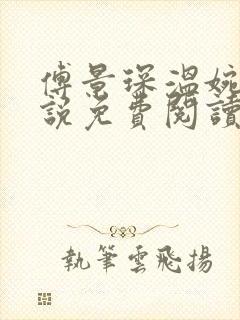 傅景琛溫婉
說免費閱讀
執筆雲飛揚